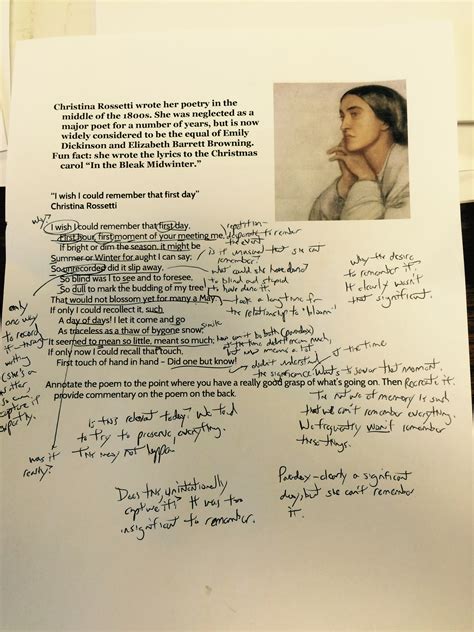 Christina Rossetti wrote her poetry in the
middle of the 1800s. She was neglected as a
major poet for a number of years, but is now
widely considered to be the equal of Emily
Dickinson and Elizabeth Barrett Browning.
Fun fact: she wrote the lyrics to the Christmas
carol "In the Bleak Midwinter."
"I wish I could remember that first day"
Christina Rossetti
why?
I wish I could remember that first day,
First hour, first moment of your meeting me,
If bright or dim the season, it might be
Summer or Winter for aught I can say;
So unrecorded did it slip away,
So blind was I to see and to foresee,
So dull to mark the budding of my tree
That would not blossom yet for many a May.
If only I could recollect it, such
A day of days! I let it come and go
As traceless as a thaw of bygone snow;
It seemed to mean so little, meant so much;
If only now I could recall that touch,
First touch of hand in hand – Did one but know!
repetition-
desperate to remember
the event
is it unusual that she can't
remember?
what could she have done?
to blind and stupid
to have done it.
took a long time for
the relationship to "bloom"
simile
how can it be both (paradox)
at the time didn't mean much,
but now means a lot
didn't understand
the significance of the time
why the desire
to remember it.
It clearly wasn't
that significant.
only
one way
to record
it -
writing
(she's a
writer,
so can
capture it
was it
really?
Annotate the poem to the point where you have a really good grasp of what's going on. Then
provide commentary on the poem on the back.
What's to savor that moment.
Recreate it.
The nature of memory is such
that we can't remember everything.
We frequently won't remember
these things.
is this relevant today? We tend
to try to preserve everything.
This may not happen
Does this unintentionally
capture it? It was too
insignificant to remember.
Paradox - clearly a significant
day, but she can't remember
it.